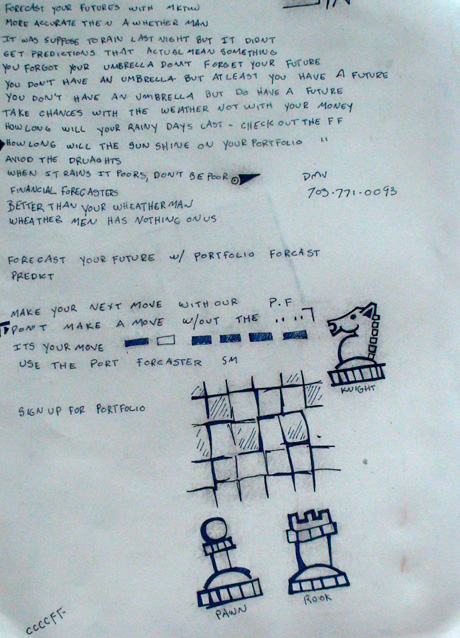 FORECAST YOUR FUTURES WITH MKTNW
MORE ACCURATE THEN A WHETHER MAN
IT WAS SUPPOSE TO RAIN LAST NIGHT BUT IT DIDN'T
GET PREDICTIONS THAT ACTUAL MEAN SOMETHING
YOU FORGOT YOUR UMBRELLA DON'T FORGET YOUR FUTURE
YOU DON'T HAVE AN UMBRELLA BUT ATLEAST YOU HAVE A FUTURE
YOU DON'T HAVE AN UMBRELLA BUT DO HAVE A FUTURE
TAKE CHANCES WITH THE WEATHER NOT WITH YOUR MONEY
HOW LONG WILL YOUR RAINY DAYS LAST - CHECK OUT THE F F
HOW LONG WILL THE SUN SHINE ON YOUR PORTFOLIO "
AVIOD THE DRUAGHTS
WHEN IT RAINS IT POORS, DON'T BE POOR
DMV
FINANCIAL FORECASTERS
703-771-0093
BETTER THAN YOUR WHEATHERMAN
WHEATHER MEN HAS NOTHING ON US
FORECAST YOUR FUTURE W/ PORTFOLIO FORCAST
PREDKT
MAKE YOUR NEXT MOVE WITH OUR P.F
DON'T MAKE A MOVE W/OUT THE " "
ITS YOUR MOVE
USE THE PORT FORCASTER SM
KNIGHT
SIGN UP FOR PORTFOLIO
PAWN
ROOK
CCCCFT-